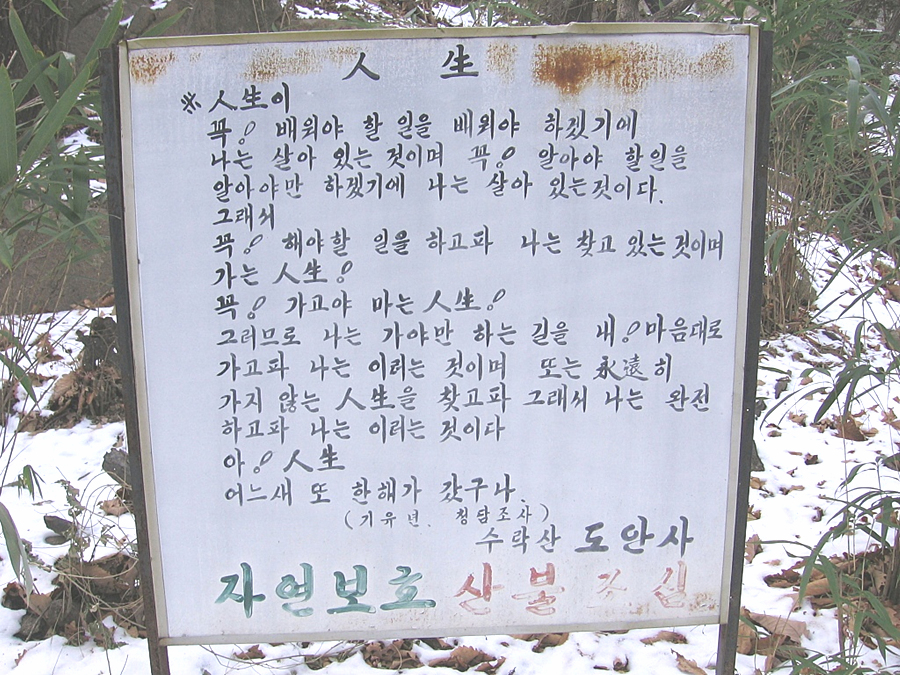 人 生
※ 人生이
꼭! 배워야 할 일을 배워야 하겠기에
나는 살아 있는 것이며 꼭! 알아야 할일을
알아야만 하겠기에 나는 살아 있는것이다.
그래서
꼭! 해야할 일을 하고파 나는 찾고 있는것이며
가는 人生!
꼭! 가고야 마는 人生!
그러므로 나는 가야만 하는 길을 내!마음대로
가고파 나는 이러는 것이며 또는 永遠히
가지 않는 人生을 찾고파 그래서 나는 완전
하고파 나는 이러는 것이다
아! 人生
어느새 또 한해가 갔구나.
(기유년. 청담조사)
수락산 도안사
자연보호 산불조심